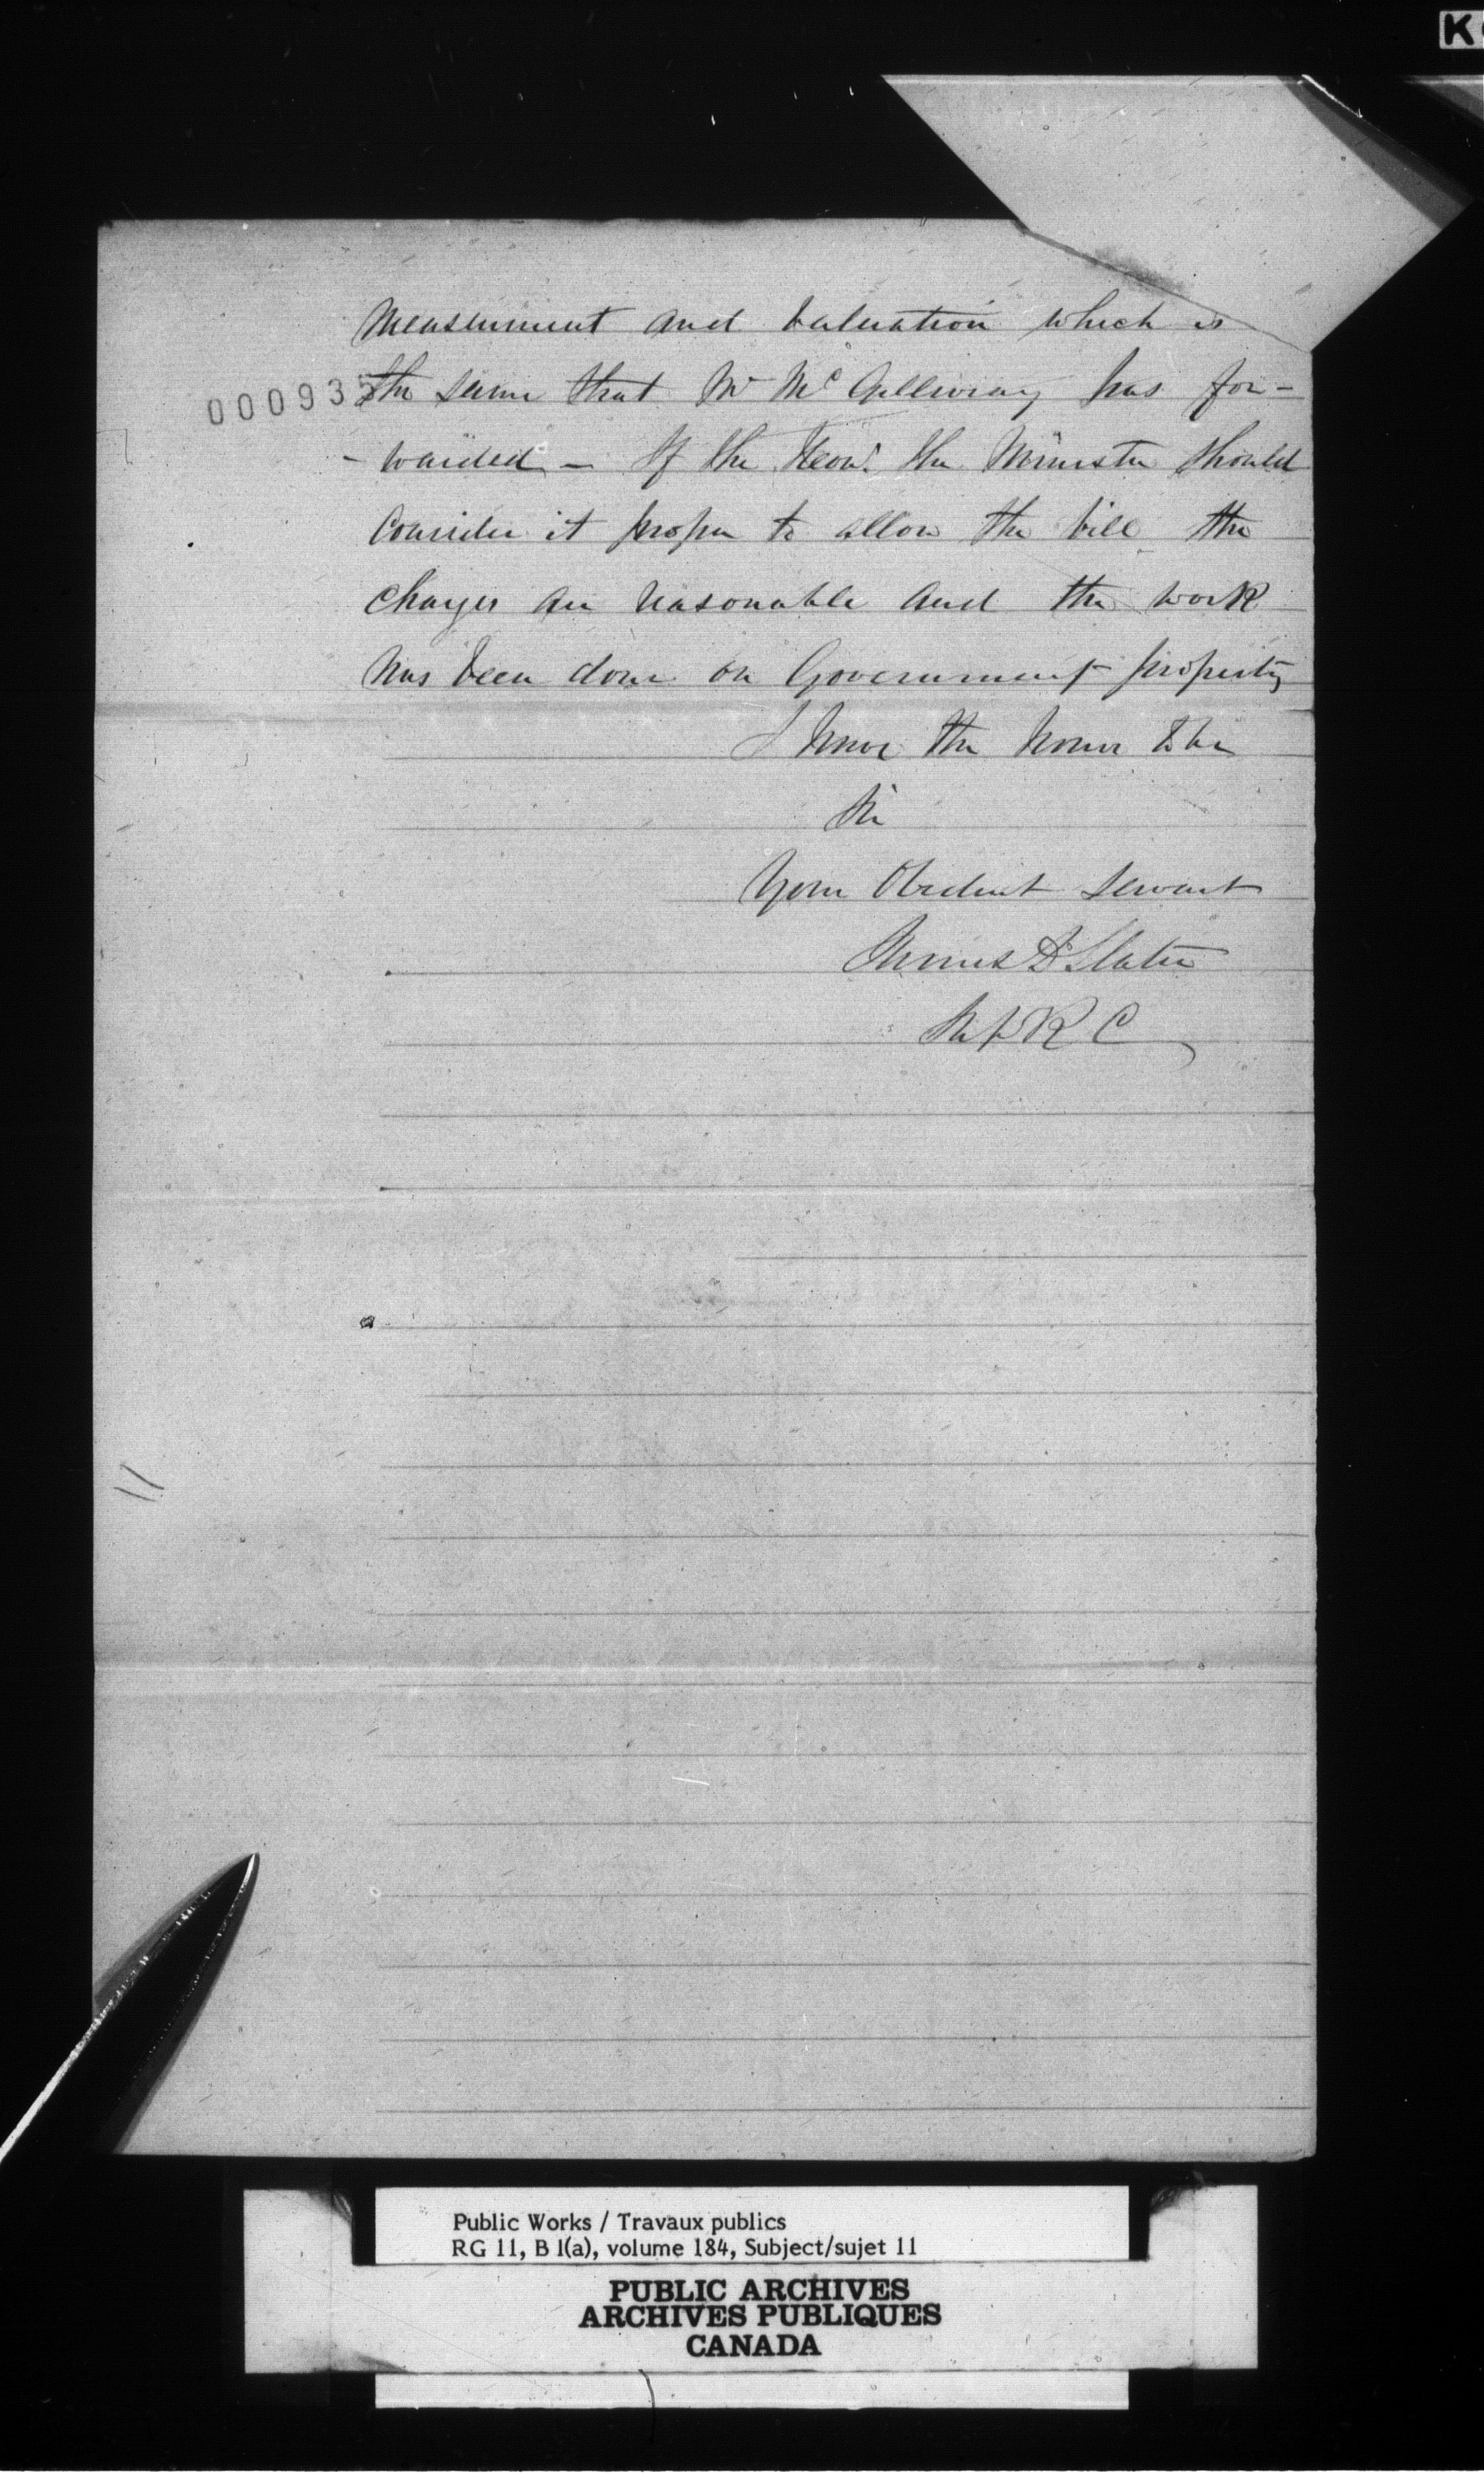 Measurement and Valuation which is
the same that Mr McGillivray has for-
000935
- warded - If the Hon. the Minister should
Consider it proper to allow the bill the
Charges are reasonable and the work
has been done on Government property
I have the honor to be
Sir
Your Obedient Servant
James D Slater
Supt R C
Public Works / Travaux publics
RG 11, B 1(a), volume 184, Subject/sujet 11
PUBLIC ARCHIVES
ARCHIVES PUBLIQUES
CANADA